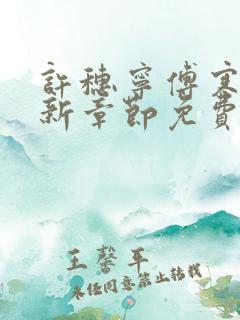 許穗寧傅寒
新章節免費
王馨平
未經同意禁止轉載